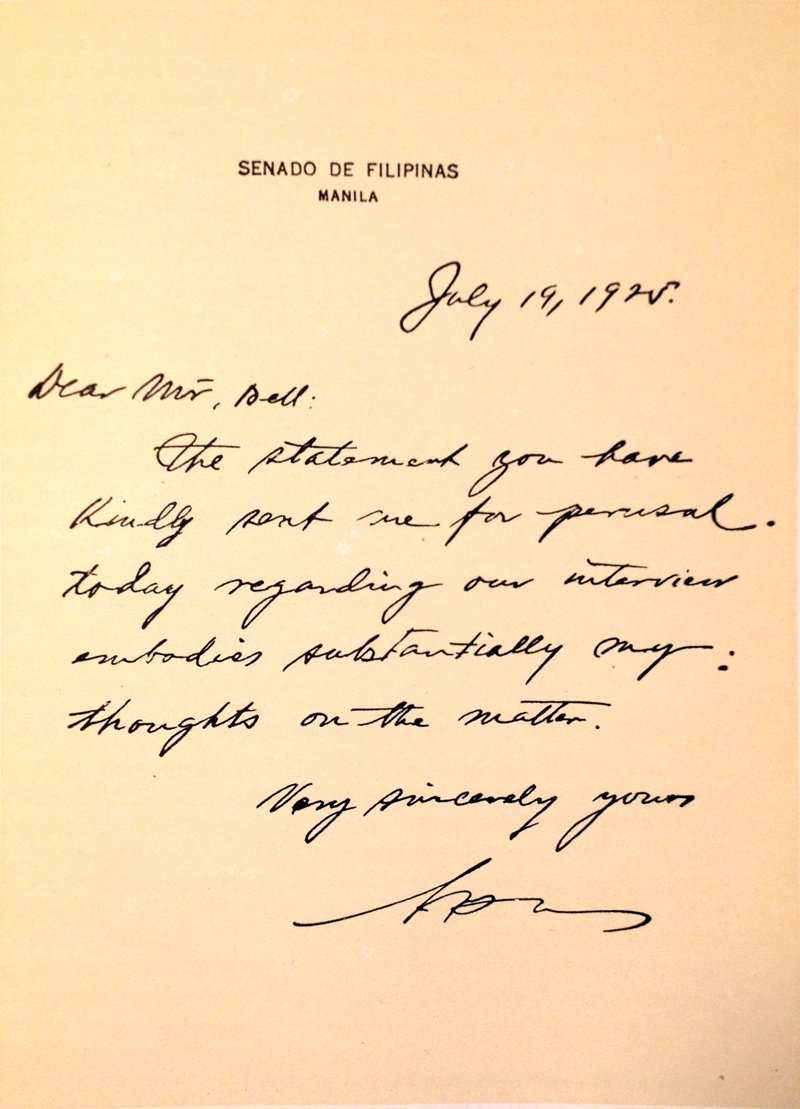 SENADO DE FILIPINAS
MANILA
July 19, 1925.
Dear Mr, Bell:
The statement you have
Kindly sent me for perusal.
today regarding our interview
embodies substantially my
thoughts on the matter.
Very sincerely yours